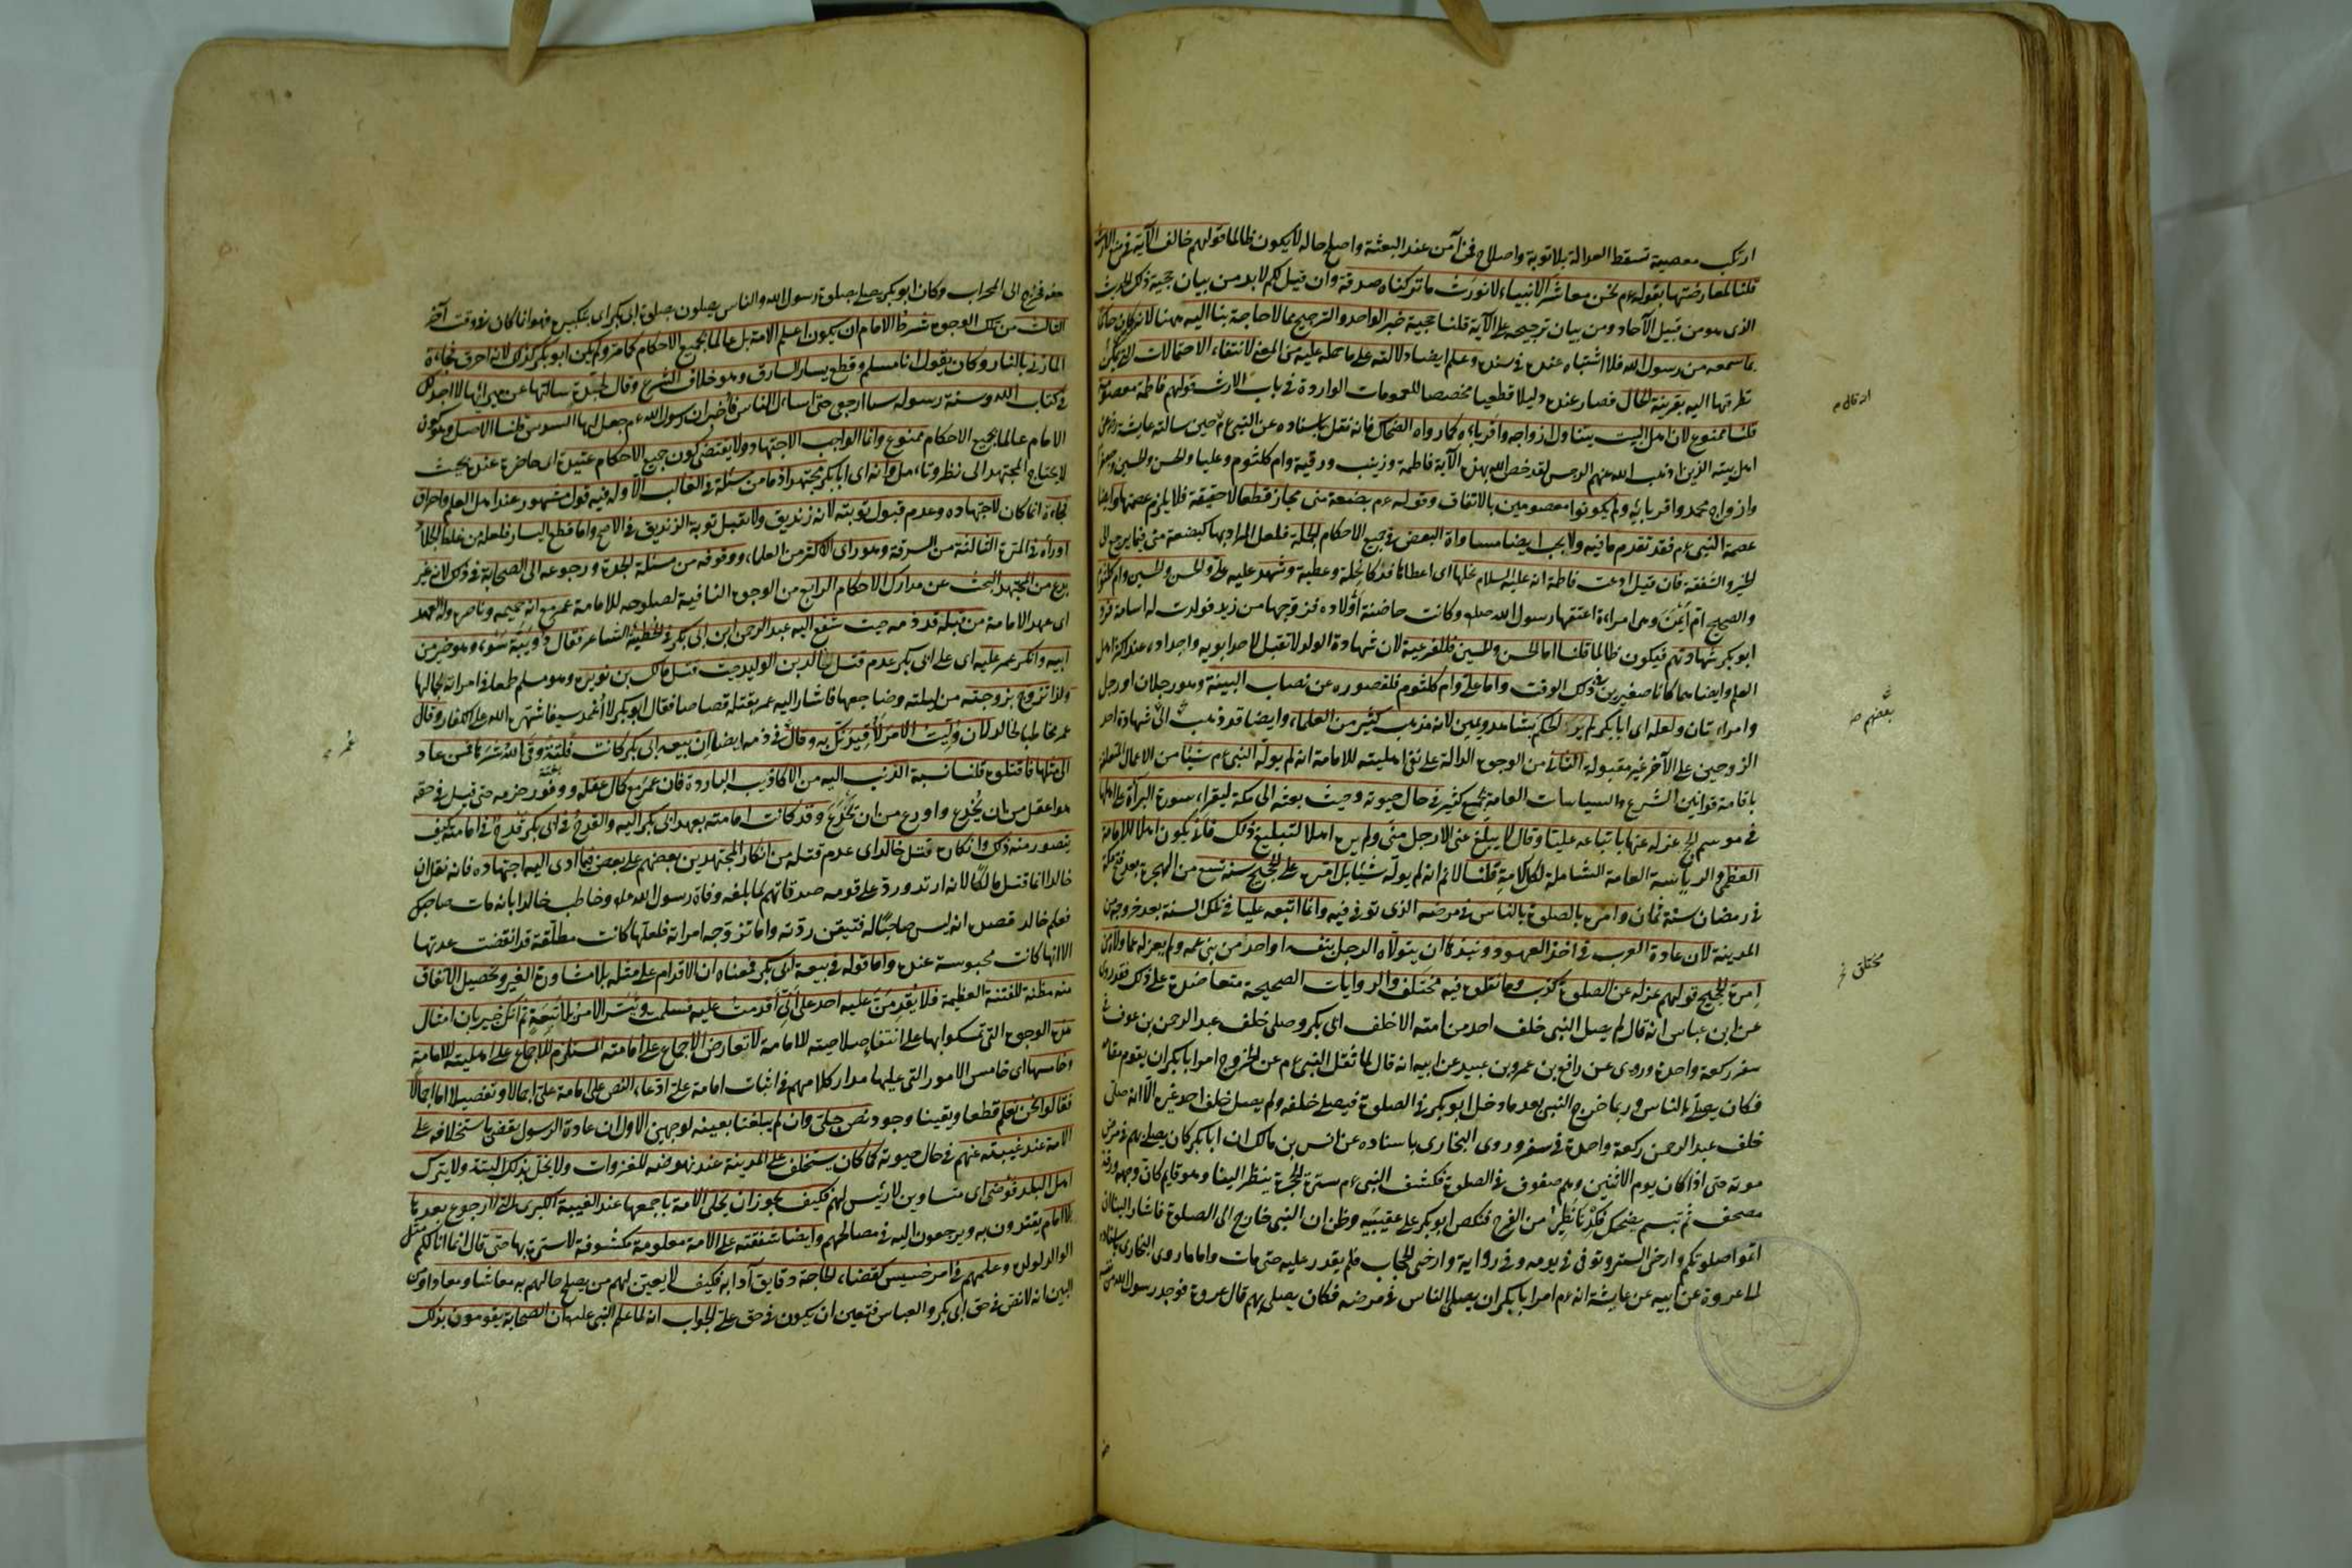 ارتكب معصية تسقط العدالة بلا توبة واصلاح فمن آمن عند البعثة واصلح حاله لا يكون ظالما قولهم خالف الآية في منع الارث
قلنا لمعارضتها بقوله عم نحن معاشر الانبياء لا نورث ما تركناه صدقة وان قيل لكم لابد من بيان حجية ذلك الحديث
الذى هو من قبيل الآحاد ومن بيان ترجيحه على الآية قلنا حجية خبر الواحد والترجيح مما لا حاجة بنا اليه ههنا لانه كان حاكما
بما سمعه من رسول الله فلا اشتباه عنده فى سنده وعلم ايضا دلالته على ما حمله عليه من المعنى لانتفاء الاحتمالات التى يمكن
تطرقها اليه بقرينة الحال فصار عنده دليلا قطعيا مخصصا للعمومات الواردة فى باب الارث قولهم فاطمة معصومة
قلنا ممنوع لان اهل البيت يتناول ازواجه واقرباءه كما رواه الضحاك فانه نقل باسناده عن النبى عم حين سالته عايشة رض عن
اهل بيته الذين اذهب الله عنهم الرجس لقد خص الله بهذه الآية فاطمة وزينب ورقية وام كلثوم وعليا والحسن والحسين وجعفرا
وازواج محمد واقربائه ولم يكونوا معصومين بالاتفاق وقوله عم بضعة منى مجاز قطعا لا حقيقة فلا يلزم عصمتها وايضا
عصمة النبى عم فقد تقدم ما فيه ولا يجب ايضا مساواة البعض فى جميع الاحكام للجملة فلعل المراد بها كبضعة منى فيما يرجع الى
الخير والشفقة فان قيل ادعت فاطمة انه عليه السلام نحلها اى اعطاها فدكا نحلة وعطية وشهد عليه على والحسن والحسين وام كلثوم
والصحيح ام أيمن وهى امراءة اعتقها رسول الله صلعم وكانت حاضنة أولاده فزوجها من زيد فولدت له اسامة فرد
ابو بكر شهادتهم فيكون ظالما قلنا اما الحسن والحسين فللفرعية لان شهادة الولد لا تقبل لاحد ابويه واجداده عند اكثر اهل
العلم وايضا هما كانا صغيرين فى ذلك الوقت واما على وام كلثوم فلقصوره عن نصاب البينة وهو رجلان او رجل
وامراءتان ولعله اى ابا بكر لم ير الحكم بشاهد ويمين لانه مذهب كثير من العلماء وايضا قد ذهب الى ان شهادة احد
الزوجين على الآخر غير مقبولة الثانى من الوجوه الدالة على نفى اهليته للامامة انه لم يوله النبى عم شيئا من الاعمال المتعلقة
باقامة قوانين الشرع والسياسات العامة لجميع كثير فى حال حيوته وحيث بعثه الى مكة ليقراء سورة البرآة على اهلها
فى موسم الحج عزله عنها باتباعه عليا وقال لا يبلغ عنى الا رجل منى ولم يره اهلا لتبليغ ذلك فانى يكون اهلا للامامة
العظمى والرياسة العامة الشاملة لكل الامة قلنا لا نم انه لم يوله شيئا بل امّره على الحجيج سنة تسع من الهجرة بعد فتح مكة
فى رمضان سنة ثمان وامره بالصلوة بالناس فى مرضه الذى توفى فيه وانما اتبعه عليا فى تلك السنة بعد خروجه من
المدينة لان عادة العرب فى اخذ العهود ونبذها ان يتولاه الرجل بنفسه او احد من بنى عمه ولم يعزله عما ولاه من
إمرة الحجيج قولهم عزله عن الصلوة كذب وما نقلوه فيه مختلف والروايات الصحيحة متعاضدة على ذلك فقد روى
عن ابن عباس انه قال لم يصل النبى خلف احد من امته الا خلف ابى بكر وصلى خلف عبد الرحمن بن عوف فى
سفر ركعة واحدة وروى عن رافع بن عمرو بن عبيد عن ابيه انه قال لما ثقل النبى عم عن الخروج امر ابا بكر ان يقوم مقامه
فكان يصلى بالناس وربما خرج النبى بعد ما دخل ابو بكر فى الصلوة فيصلى خلفه ولم يصل خلف احد غيره الا انه صلى
خلف عبد الرحمن ركعة واحدة فى سفر وروى البخارى باسناده عن انس بن مالك ان ابا بكر كان يصلى بهم فى مرض
موته حتى اذا كان يوم الاثنين وهم صفوف فى الصلوة فكشف النبى عم سترة الحجرة ينظر الينا وهو قايم كان وجهه ورقة
مصحف ثم تبسم يضحك فكدنا نطير من الفرح فنكص ابو بكر على عقيبيه وظن ان النبى خارج الى الصلوة فاشار الينا ان
اتموا صلوتكم وارخى الستر وتوفى فى يومه وفى رواية وارخى الحجاب فلم يقدر عليه حتى مات واما ما روى البخارى باسناده
الى عروة عن ابيه عن عايشة انه عم امر ابا بكر ان يصلى الناس فى مرضه فكان يصلى بهم قال عروة فوجد رسول الله من نفسه
بعضهم صح
مختلق
خفة فخرج الى المحراب وكان ابو بكر يصلى بصلوة رسول الله والناس يصلون بصلوة ابى بكر اى بتكبيره فهو انما كان فى وقت آخر
الثالث من تلك الوجوه شرط الامام ان يكون اعلم الامة بل عالما بجميع الاحكام كما مر ولم يكن ابو بكر كذلك لانه احرق فجاءة
المازنى بالنار وكان يقول انا مسلم وقطع يسار السارق وهو خلاف الشرع وقال لجدة سالتها عن ميراثها لا اجد لك
فى كتاب الله وسنة رسوله سا ارجعى حتى اسال الناس فأخبر ان رسول الله عم جعل لها السدس قلنا الاصل وهو كون
الامام عالما بجميع الاحكام ممنوع وانما الواجب الاجتهاد ولا يقتضى كون جميع الاحكام عتيدة اى حاضرة عنده بحيث
لا يحتاج المجتهد الى نظر وتامل وانه اى ابا بكر مجتهد اذ ما من مسئلة فى الغالب الا وله فيه قول مشهور عند اهل العلم واحراق
فجاءة انما كان لاجتهاده وعدم قبول توبته لانه زنديق ولا تقبل توبة الزنديق فى الاصح واما قطع اليسار فلعله من غلط الجلاد
او رآه فى المرة الثالثة من السرقة وهو راى الاكثر من العلماء ووقوفه من مسئلة الجدة ورجوعه الى الصحابة فى ذلك لانه غير
بدع من المجتهد البحث عن مدارك الاحكام الرابع من الوجوه النافية لصلوحه للامامة عمر مع انه حميمه وناصره وله العهد
اى عهد الامامة من قبله قد ذمه حيث شفع اليه عبد الرحمن ابن ابى بكر فى الحطيئة الشاعر فقال دويبة سوء وهو خير من
ابيه وانكر عمر عليه اى على ابى بكر عدم قتل خالد بن الوليد حيث قتل مالك بن نويره وهو مسلم طمعا فى امراته لجمالها
ولذا تزوج بزوجته من ليلته وضاجعها فاشار اليه عمر بقتله قصاصا فقال ابو بكر لا أغمد سيفا شهره الله على الكفار وقال
عمر مخاطبا لخالد لان وليت الامر لأقيدنك به وقال فى ذمه ايضا ان بيعه ابى بكر كانت فلتة وقى الله شرها فمن عاد
الى مثلها فاقتلوه قلنا نسبة الذنب اليه من الاكاذيب الباردة فان عمر مع كمال عقله ووفور حزمه حتى قيل فى حقه
هو اعقل من ان يُخدع واورع من ان يَخدع وقد كانت امامته بعهد ابى بكر اليه والقدح فى ابى بكر قدح فى امامته كيف
يتصور منه ذلك وانكاره قتل خالد اى عدم قتله من انكار المجتهدين بعضهم على بعض فيما ادى اليه اجتهاده فانه نقل ان
خالدا انما قتل مالكا لانه ارتد ورد على قومه صدقاتهم لما بلغه وفاة رسول الله صلعم وخاطب خالدا بانه مات صاحبك
فعلم خالد قصده انه ليس صاحبا له فتيقن ردته واما تزوجه امراته فلعلها كانت مطلقة قد انقضت عدتها
الا انها كانت محبوسة عنده واما قوله فى بيعة ابى بكر فمعناه ان الاقدام على مثله بلا مشاورة الغير وتحصيل الاتفاق
منه مظنة للفتنة العظيمة فلا يُقدمنّ عليه احد على أنى أقدمت عليه فسلمت وتيسر الامر بلا تبعة ثم انك خبير بان امثال
هذه الوجوه التى تمسكوا بها على انتفاء صلاحيته للامامة لا تعارض الاجماع على امامته المستلزم للاجماع على اهليته للامامة
وخامسها اى خامس الامور التى عليها مدار كلامهم فى اثبات امامة على ادعاء النص على امامة على اجمالا وتفصيلا اما اجمالا
فقالوا نحن نعلم قطعا ويقينا وجود نص جلى وان لم يبلغنا بعينه لوجهين الاول ان عادة الرسول يقضى باستخلافه على
الامة عند غيبته عنهم فى حال حيوته كما كان يستخلف على المدينة عند نهوضه للغزوات ولا يخل بذلك البتة ولا يترك
اهل البلد فوضى اى متساوين لا رئيس لهم فكيف يجوز ان يخلى الامة باجمعها عند الغيبة الكبرى التى لا رجوع بعدها
بلا امام يقتدون به ويرجعون اليه فى مصالحهم وايضا شفقته على الامة معلومة مكشوفة لا سترة بها حتى قال انما انا لكم مثل
الوالد لولده وعلمهم فى امر خسيس كقضاء الحاجة دقايق آدابه فكيف لا يعين لهم من يصلح حالهم به معاشا ومعادا ومن
البين انه لا نص فى حق ابى بكر والعباس فتعين ان يكون فى حق على الجواب انه لما علم النبى عليه ان الصحابة يقومون بذلك